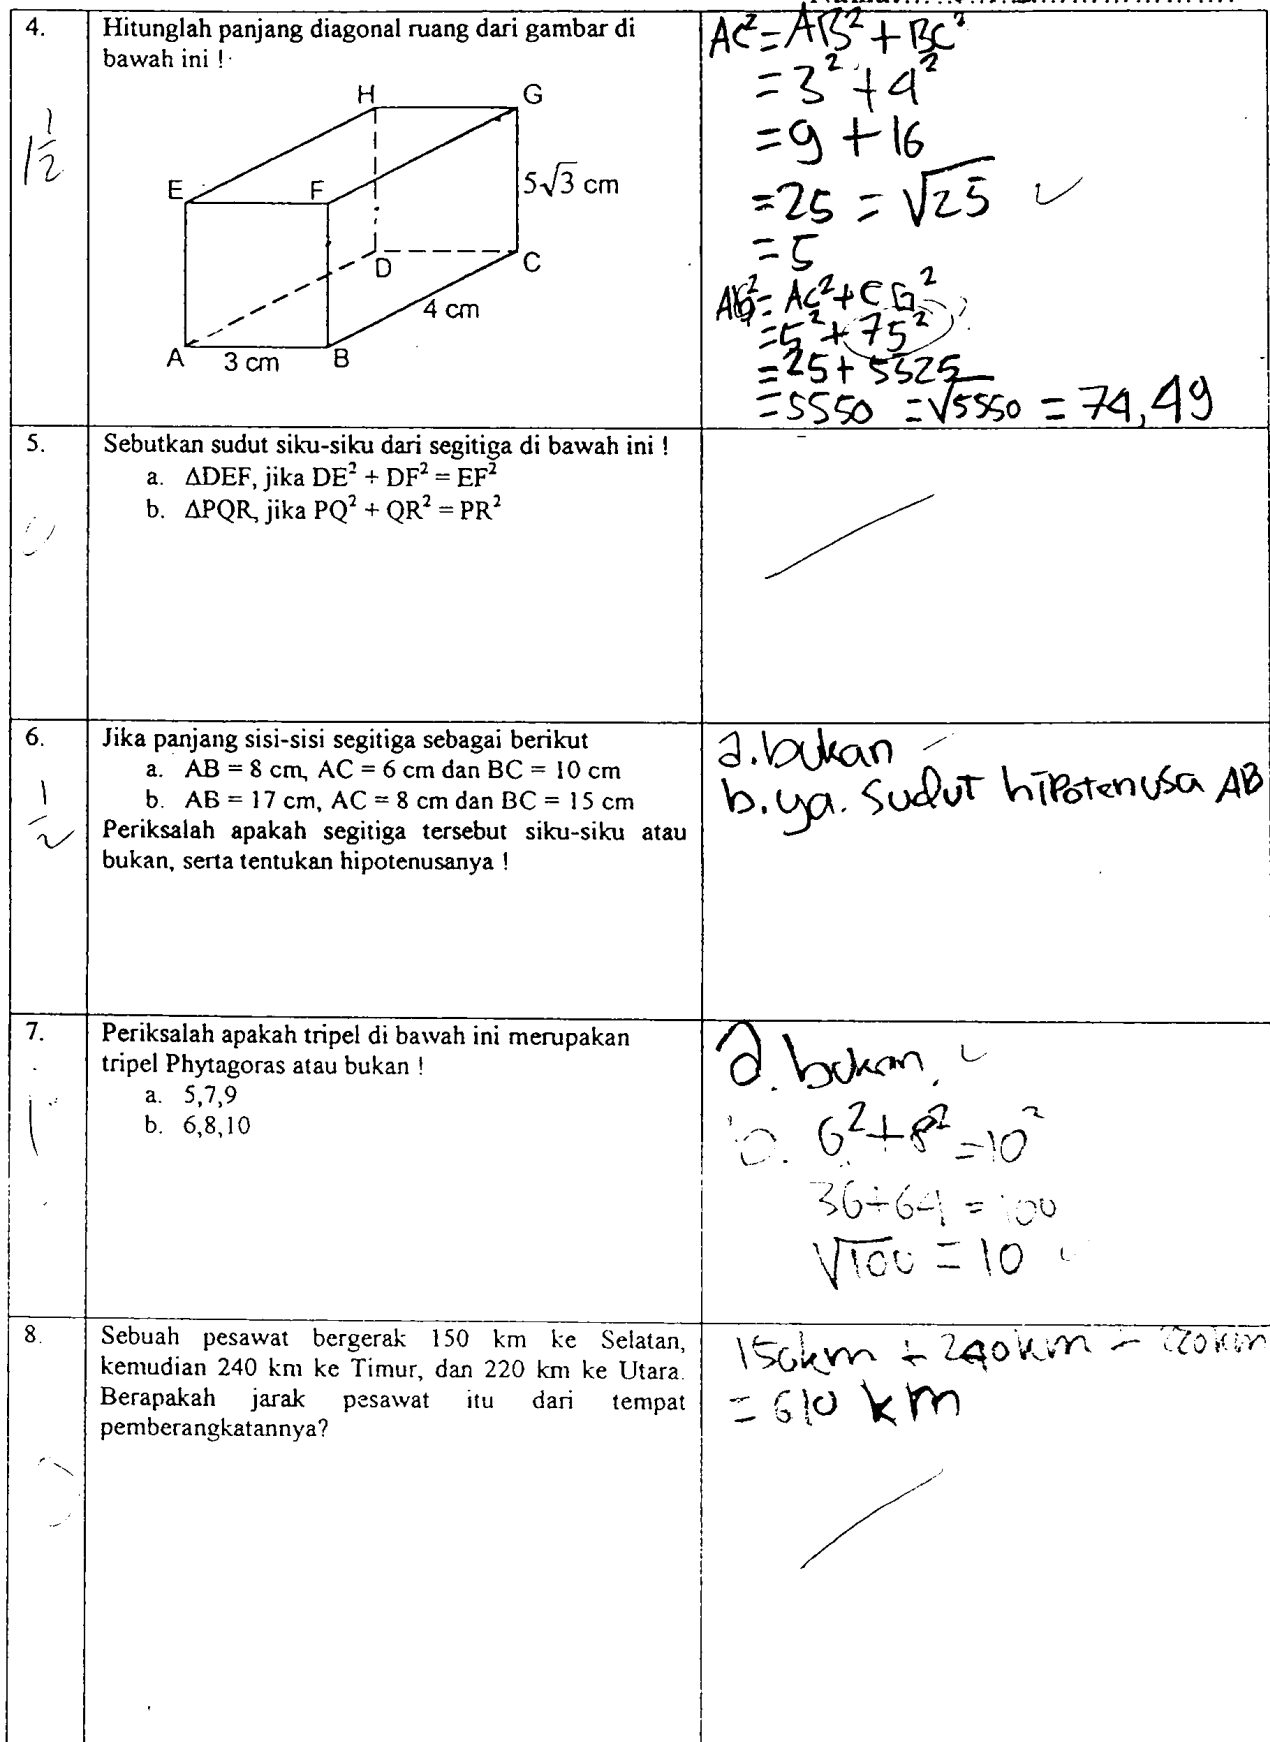 4.
Hitunglah panjang diagonal ruang dari gambar di
bawah ini !
H
G
E
F
5√3 cm
D
C
4 cm
A
3 cm
B
1 1/2
AC² = AB² + BC²
= 3² + 4²
= 9 + 16
= 25 = √25 ✓
= 5
AG² = AC² + CG²
= 5² + 75²
= 25 + 5525
= 5550 = √5550 = 74,49
5.
Sebutkan sudut siku-siku dari segitiga di bawah ini !
a. ΔDEF, jika DE² + DF² = EF²
b. ΔPQR, jika PQ² + QR² = PR²
0
6.
Jika panjang sisi-sisi segitiga sebagai berikut
a. AB = 8 cm, AC = 6 cm dan BC = 10 cm
b. AB = 17 cm, AC = 8 cm dan BC = 15 cm
Periksalah apakah segitiga tersebut siku-siku atau
bukan, serta tentukan hipotenusanya !
1/2
a. bukan
b. ya. sudut hipotenusa AB
7.
Periksalah apakah tripel di bawah ini merupakan
tripel Phytagoras atau bukan !
a. 5,7,9
b. 6,8,10
1
a. bukan. ✓
b. 6² + 8² = 10²
36 + 64 = 100
√100 = 10 ✓
8.
Sebuah pesawat bergerak 150 km ke Selatan,
kemudian 240 km ke Timur, dan 220 km ke Utara.
Berapakah jarak pesawat itu dari tempat
pemberangkatannya?
150km + 240km + 220km
= 610 km